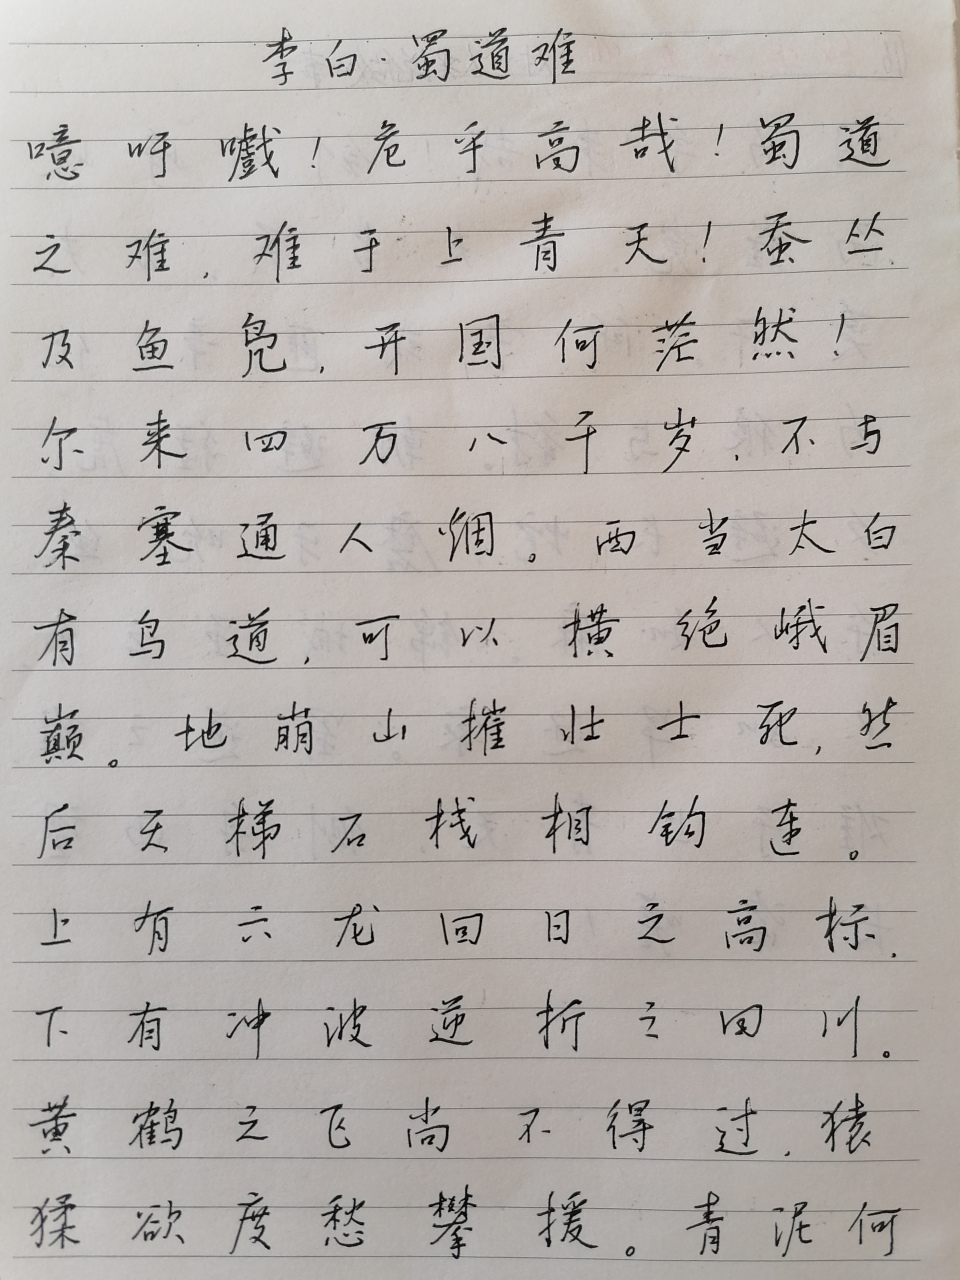 李白·蜀道难
噫吁嚱！危乎高哉！蜀道
之难，难于上青天！蚕丛
及鱼凫，开国何茫然！
尔来四万八千岁，不与
秦塞通人烟。西当太白
有鸟道，可以横绝峨眉
巅。地崩山摧壮士死，然
后天梯石栈相钩连。
上有六龙回日之高标，
下有冲波逆折之回川。
黄鹤之飞尚不得过，猿
猱欲度愁攀援。青泥何